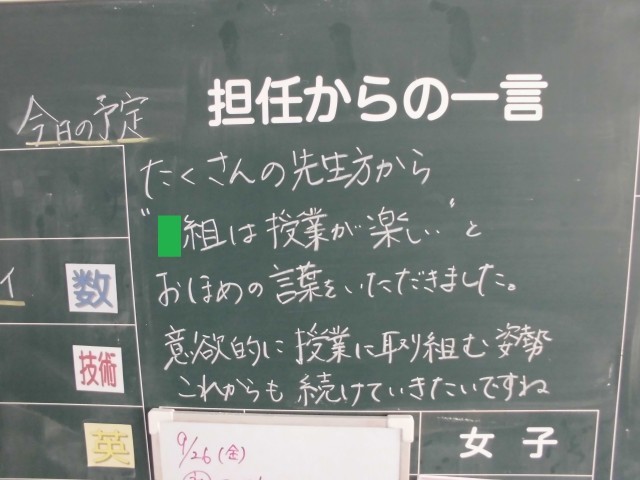 担任からの一言
今日の予定
たくさんの先生方から
"組は授業が楽しい"と
おほめの言葉をいただきました。
意欲的に授業に取り組む姿勢
これからも続けていきたいですね
数
技術
英
9/26(金)
女子